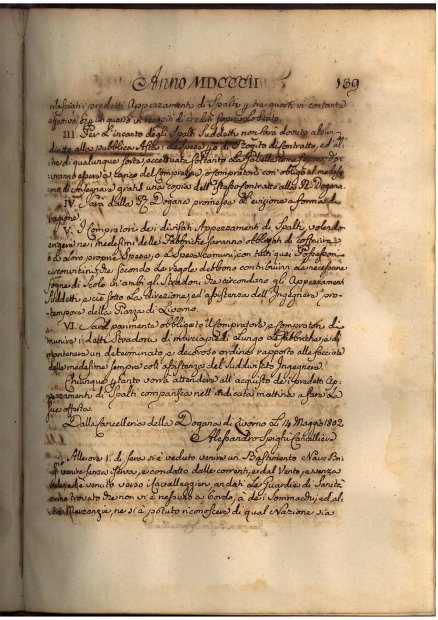 Anno MDCCCII 139
rilasciati i predetti Appezzamenti di Spalti p. tre quarti in contante
un quarto in recapiti di crediti
III. Per l'incanto degli Spalti suddetti non sarà dovuto alcun
diritto alla pubblica le spese di Rogito di contratto, ed al
tre di qualunque sorte eccettuata soltanto la Gabella
a carico del Compratore, o Compratori con obbligo al medesi
mo di consegnare gratis una copia dell'istesso contratto alla R. Dogana.
IV. Sarà dalla R. Dogana promessa l'evizione a forma di
ragione.
V. I Compratori dei divisati Appezzamenti di Spalti, volendo
erigere nei medesimi delle Fabbriche saranno obbligati di costruire
a loro proprie Spese, o a Spese comuni, con tutti quei Possessori
circonvicini, che secondo le regole debbono contribuirvi le necessarie
fogne di scolo di ambi gli Stradoni, che circondano gli Appezzamenti
suddetti, e ciò sotto la direzione, ed assistenza dell'Ingegnere pro-
tempore della Piazza di Livorno.
VI. Sarà parimente obbligato il Compratore, o Compratori di
munire i detti Stradoni di marciapiedi lungo le fabbriche, e di
mantenere un determinato, e decoroso ordine rapporto alle facciate
delle medesime sempre coll'assistenza del suddivisato Ingegnere.
Chiunque p. tanto vorrà attendere all'acquisto dei predetti Ap-
pezzamenti di Spalti comparisca nell'indicata mattina a fare la
sue offerte.
Dalla Cancelleria della Dogana di Livorno li 14 Maggio 1802.
Alessandro Spighi Cancelliere
Alle ore 1. di sera si è veduto venire un Bastimento
venire senza e condotto dalle correnti, e dal Vento, e senza
è venuto verso Cavalleggieri, andati le Guardie di Sanità
anno trovato che non vi è nessuno a bordo, à dei Sommacchi, ed al-
tre Mercanzie, ne si à potuto riconoscere di qual Nazione sia